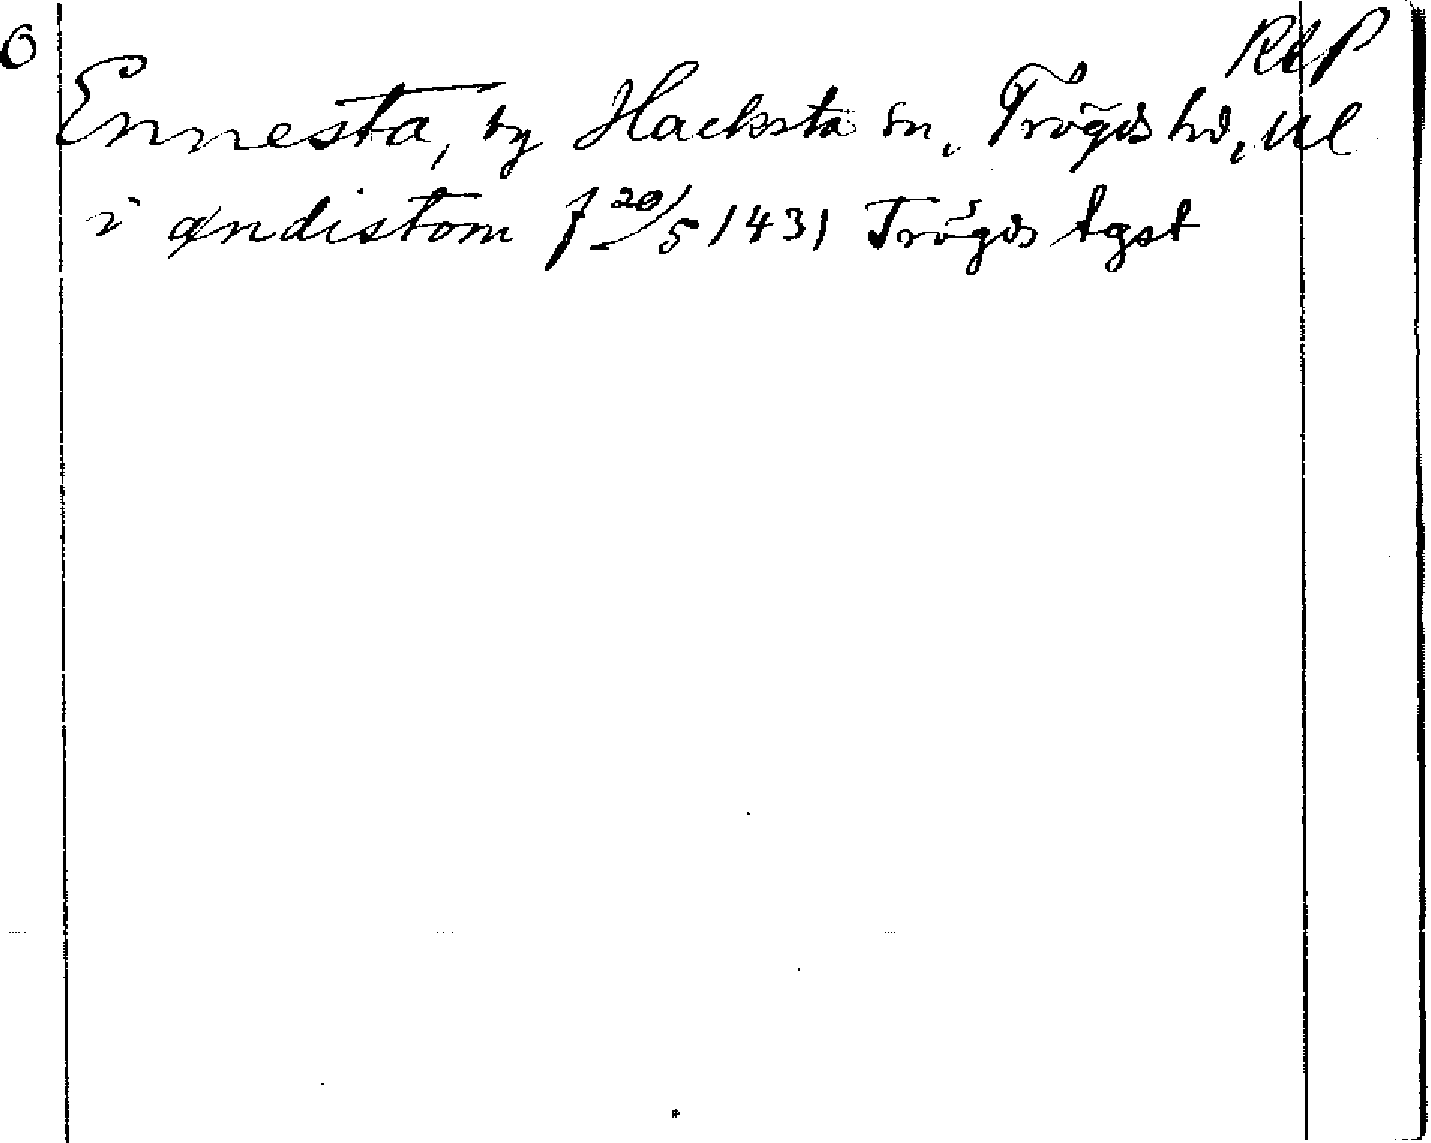 6
RAP
Ennesta, by Hacksta sn, Trögds hd, Ul
i øndistom f 20/5 1431 Trögds tgst